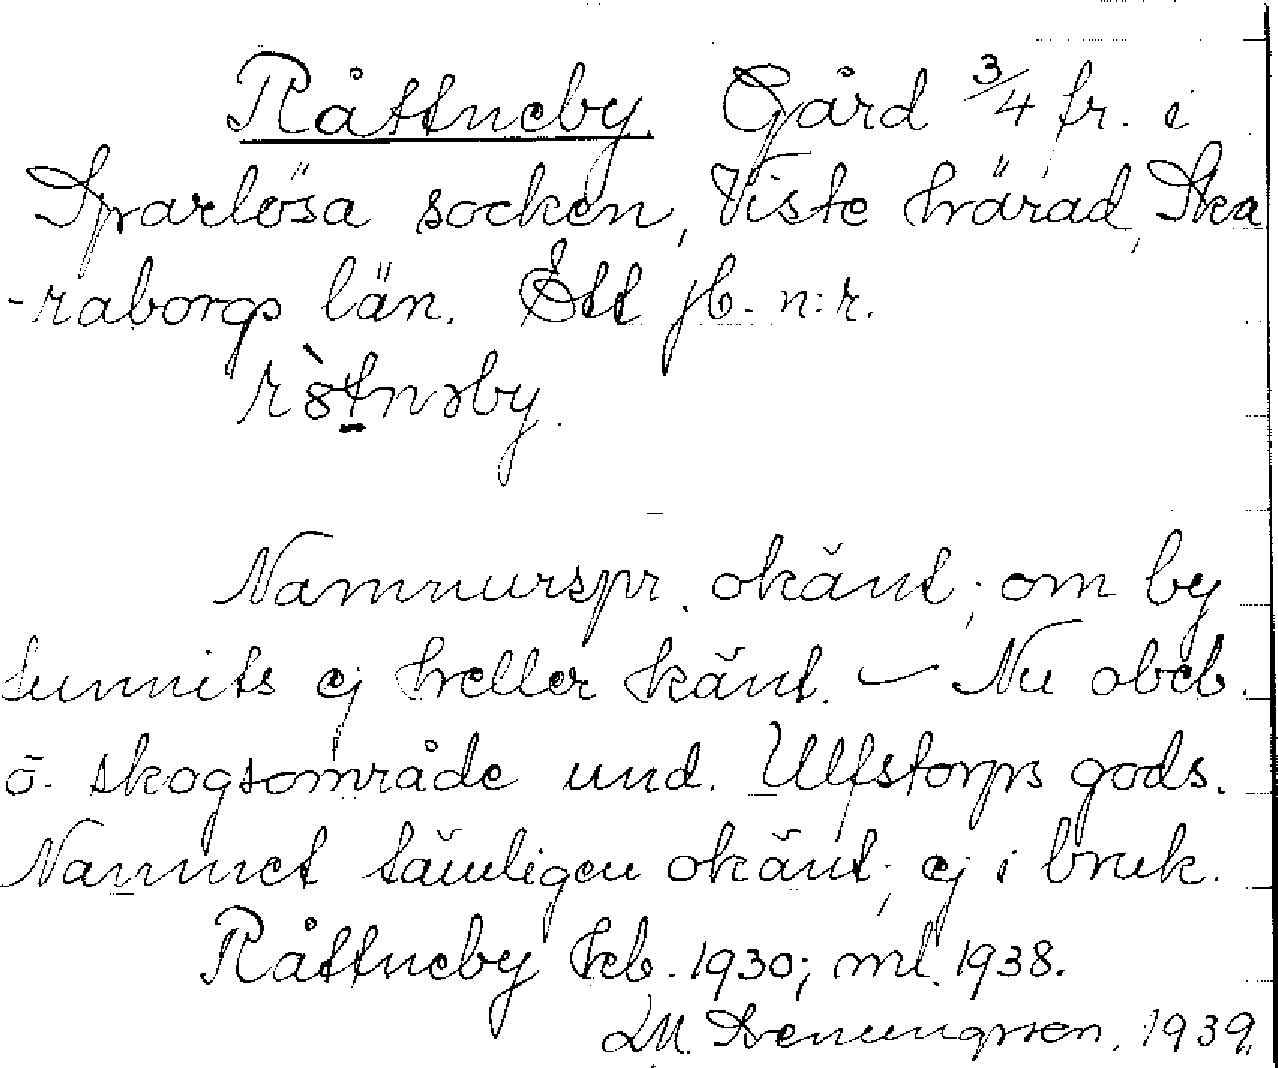 Råttneby. Gård 3/4 fr. i
Sparlösa socken, Viste härad, Ska
-raborgs län. Ett jb. n:r.
Namnurspr. okänt; om by
funnits ej heller känt. – Nu obeb.
o. skogsområde und. Ulfstorps gods.
Namnet tämligen okänt; ej i bruk.
Råttneby kb. 1930; ml. 1938.
1939.